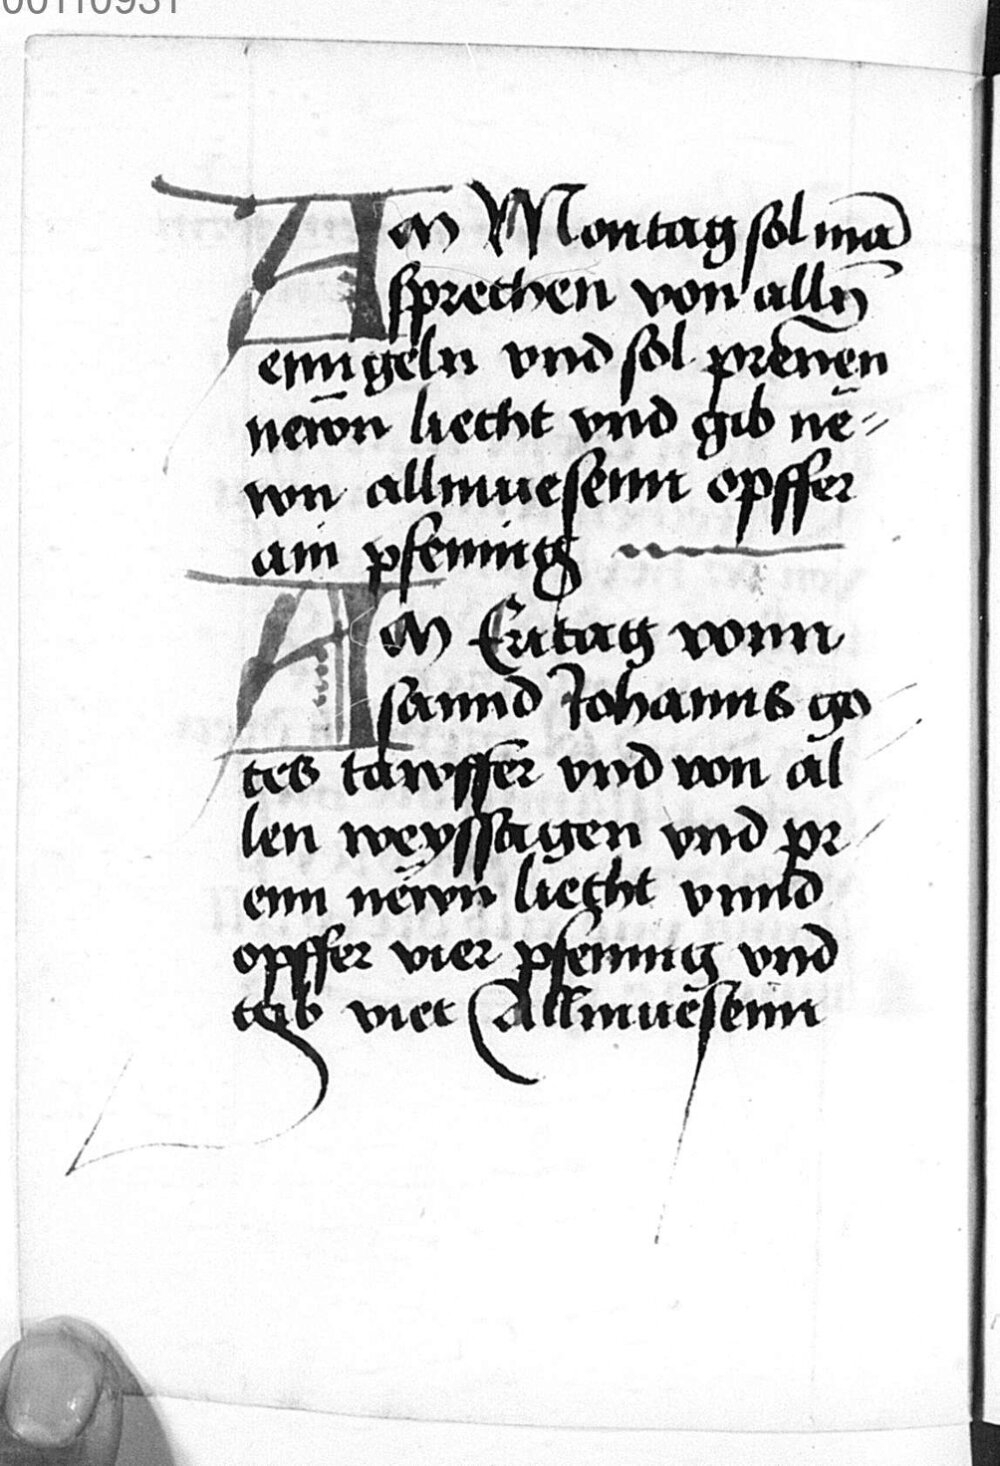 00110931
Am Montag sol mā
sprechen von alln̄
enngeln vnd sol prēnen
newn̄ liecht vnd gib nē=
wn allmuesenn opffer
ain pfening
Am Eritag vonn
sannd Johanns go
tes tawffer vnd von al
len weyssagen vnd pr
enn newn liecht vnnd
opffer vier pfening vnd
gib vier Allmuesenn